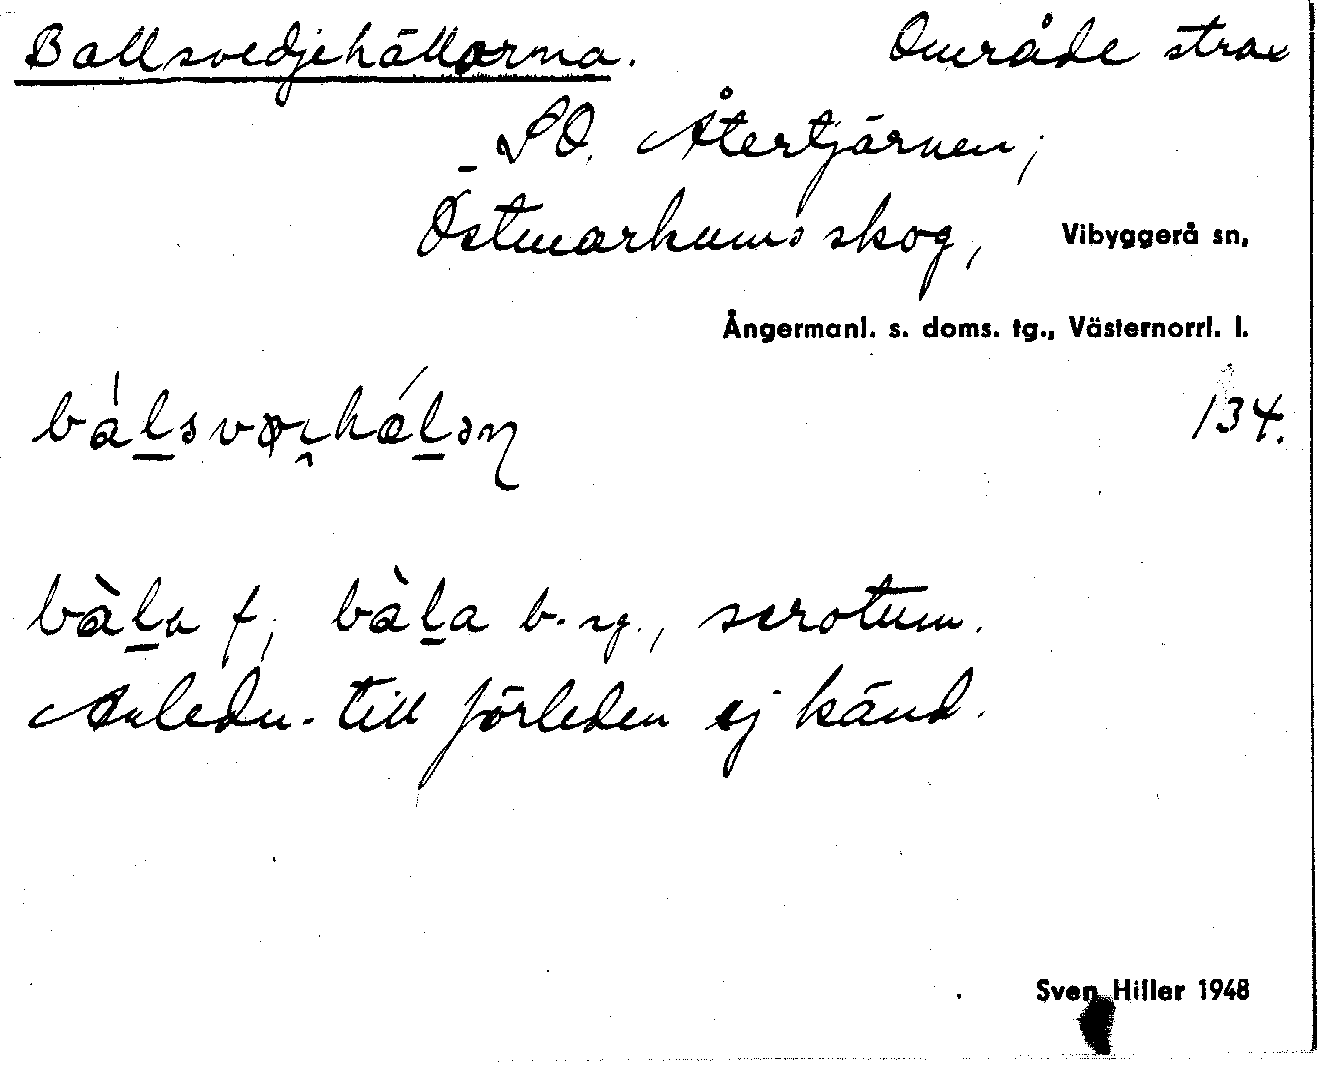 Ballsvedjehällorna. Område strax
SO. Återtjärnen;
Östmarkumsskog, Vibyggerå sn,
Ångermanl. s. doms. tg., Västernorrl. l.
134.
bàla f, bàla b. sg., scrotum.
Anledn. till förleden ej känd.
Sven Hiller 1948